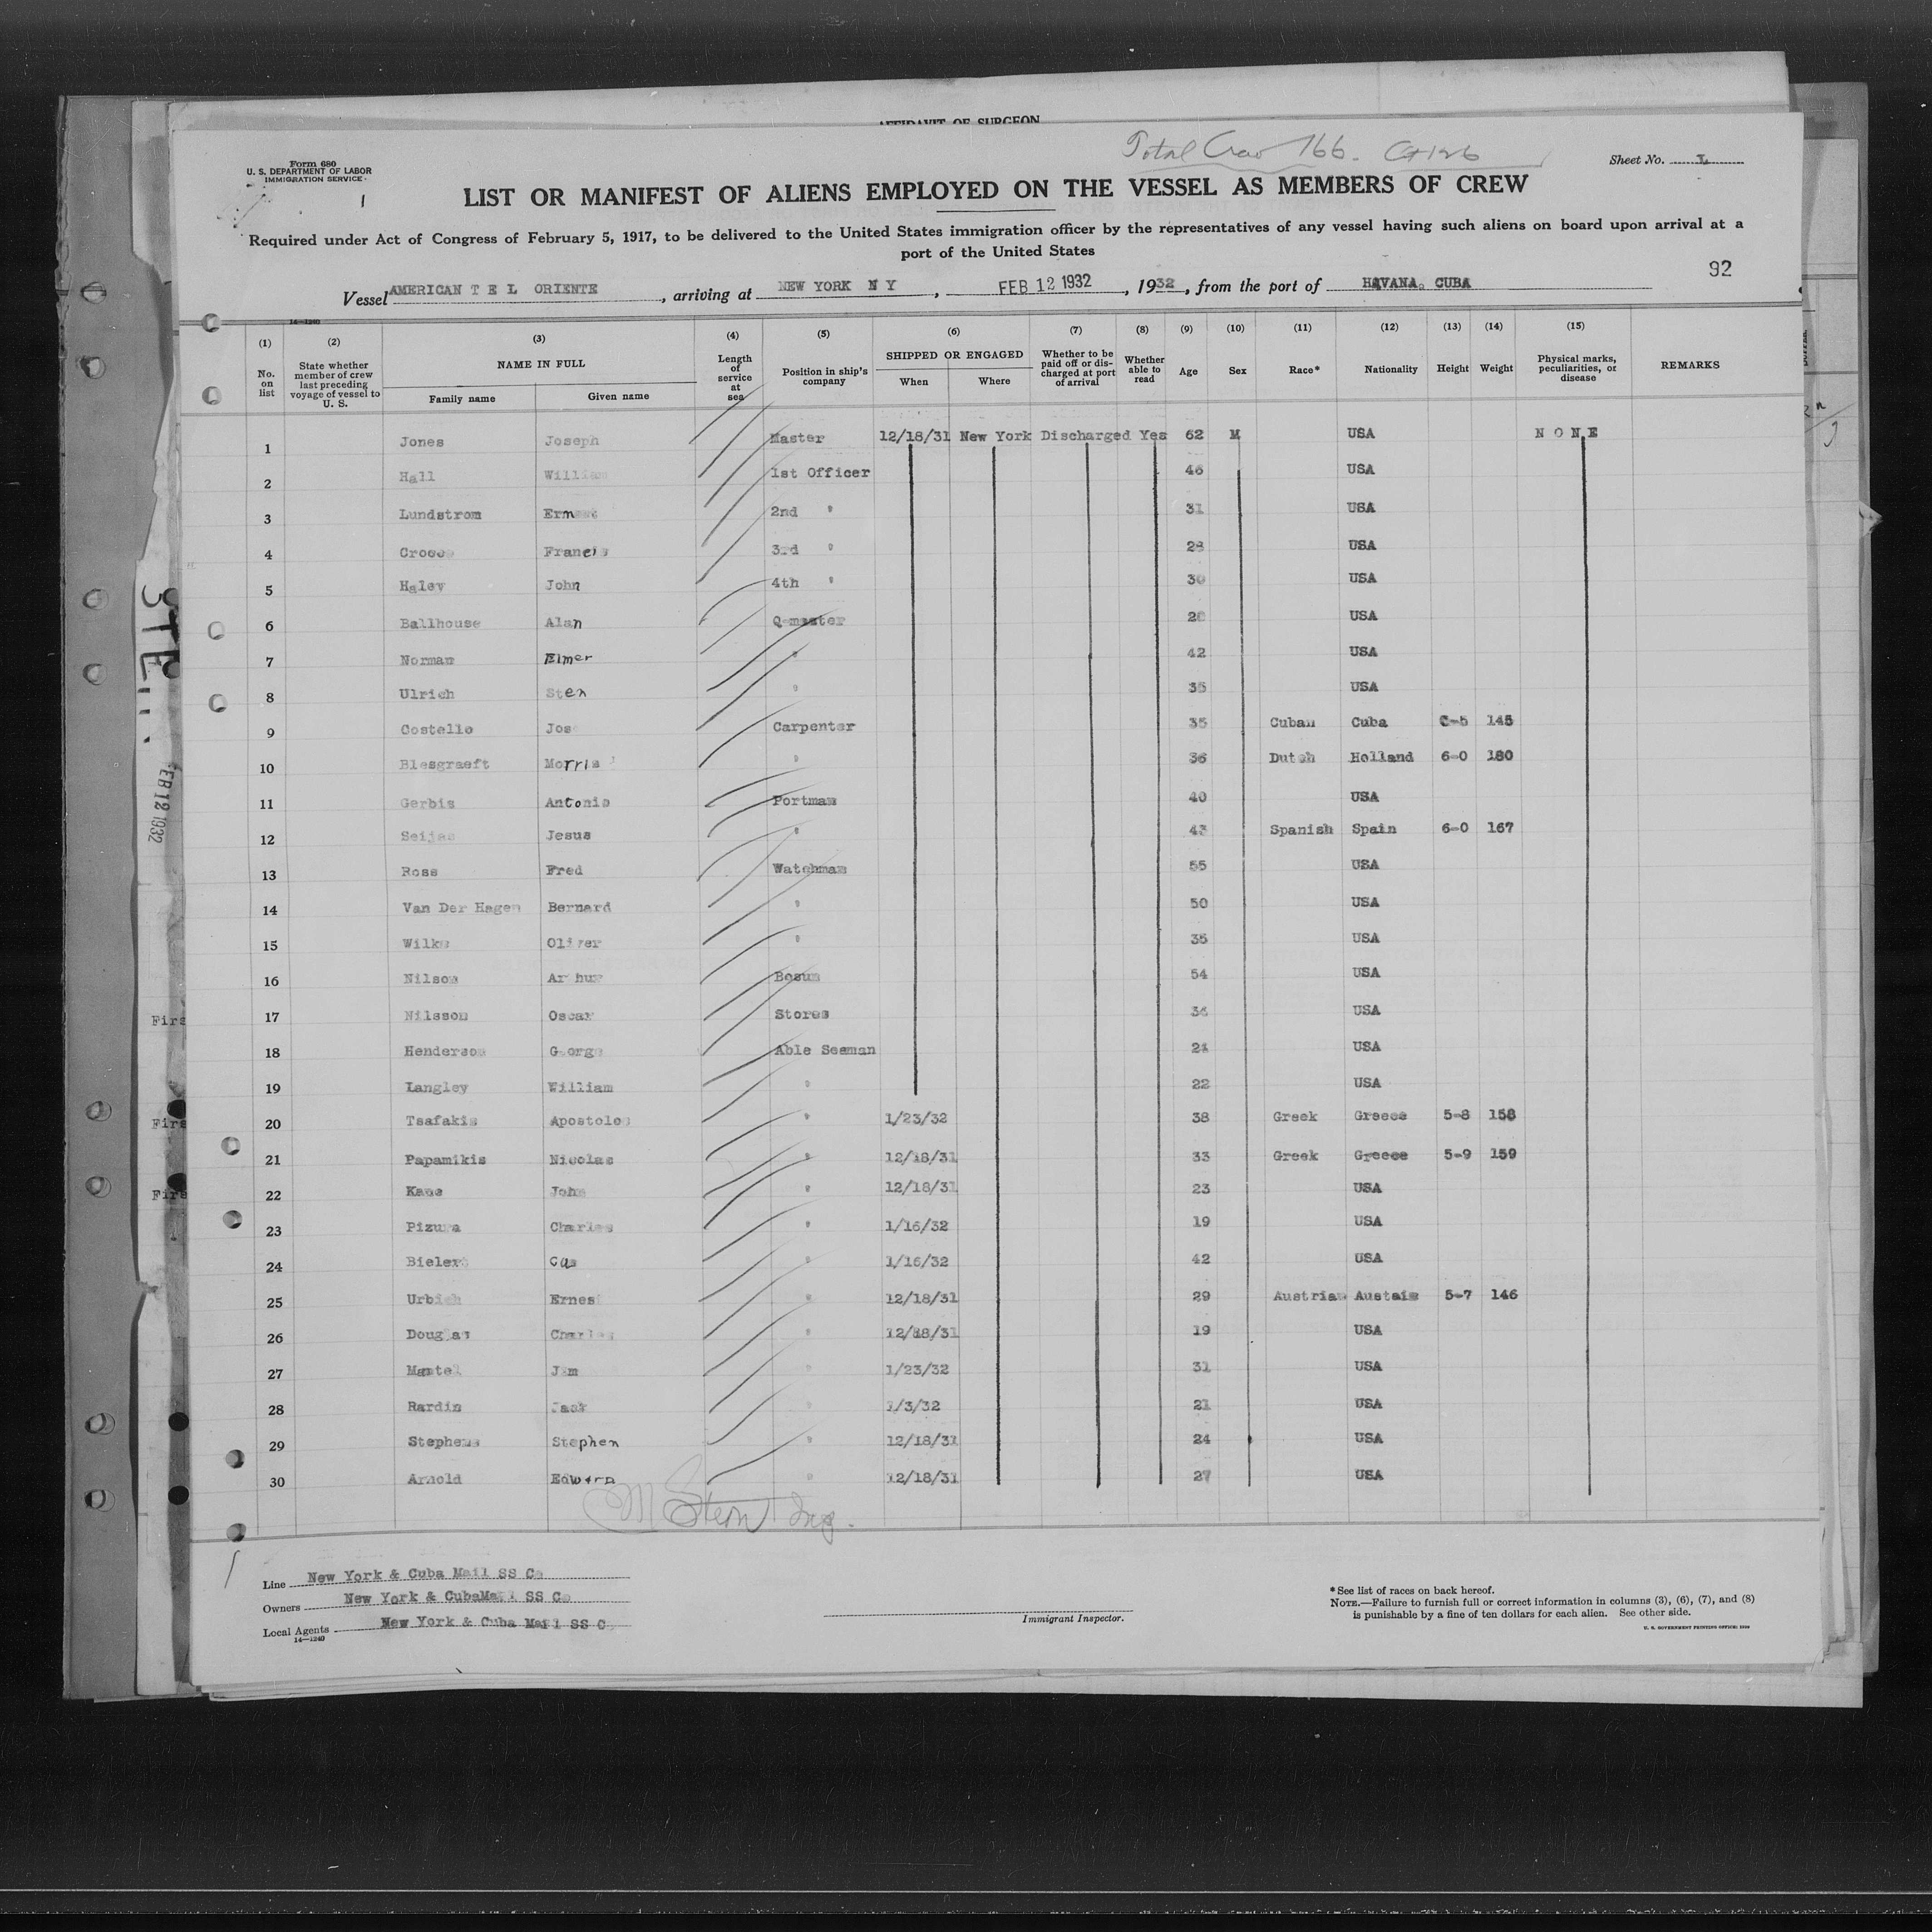 AFFIDAVIT OF SURGEON
Total Crew 166.
Form 680
U. S. DEPARTMENT OF LABOR
IMMIGRATION SERVICE
1
Sheet No.
LIST OR MANIFEST OF ALIENS EMPLOYED ON THE VESSEL AS MEMBERS OF CREW
Required under Act of Congress of February 5, 1917, to be delivered to the United States immigration officer by the representatives of any vessel having such aliens on board upon arrival at a
port of the United States
92
Vessel AMERICAN T E L ORIENTE, arriving at NEW YORK N Y, FEB 12 1932, 1932, from the port of HAVANA. CUBA
14—1240
(1) (2) (3) (4) (5) (6) (7) (8) (9) (10) (11) (12) (13) (14) (15)
No. on list
State whether member of crew last preceding voyage of vessel to U. S.
NAME IN FULL
Family name Given name
Length of service at sea
Position in ship's company
SHIPPED OR ENGAGED
When Where
Whether to be paid off or discharged at port of arrival
Whether able to read
Age Sex Race* Nationality Height Weight
Physical marks, peculiarities, or disease
REMARKS
1 Jones Joseph Master 12/18/31 New York Discharged Yes 62 M USA N O N E
2 Hall William 1st Officer 46 USA
3 Lundstrom 2nd " 31 USA
4 Francis 3rd " 28 USA
5 Haley John 4th " 30 USA
6 Ballhouse Alan Q-master USA
7 Norman Elmer " 42 USA
8 Ulrich Sten " 35 USA
9 Costello Jos Carpenter 35 Cuban Cuba 145
10 Blesgraeft Morris " 36 Dutch Holland 6-0 180
11 Gerbis Antonio Portman 40 USA
12 Seijas Jesus " 43 Spanish Spain 6-0 167
13 Ross Fred Watchman 55 USA
14 Van Der Hagen Bernard " 50 USA
15 Wilke Oliver " 35 USA
16 Nilson Arthur Bosun 54 USA
17 Nilsson Oscar Stores USA
18 Henderson George Able Seeman 21 USA
19 Langley William " 22 USA
20 Tsafakis Apostolos " 1/23/32 38 Greek Greece 5-8 158
21 Papamikis Nicolas " 12/18/31 33 Greek Greece 5-9 159
22 Kane John " 12/18/31 23 USA
23 Pizura Charles " 1/16/32 19 USA
24 Bielert Gus " 1/16/32 42 USA
25 Ernest " 12/18/31 29 Austrian Austain 5-7 146
26 Douglas Charles " 12/18/31 19 USA
27 Mantel Jim " 1/23/32 31 USA
28 Rardin Jack " 1/3/32 21 USA
29 Stephens Stephen " 12/18/31 24 USA
30 Arnold Edward " 12/18/31 27 USA
M Stern Insp.
Line New York & Cuba Mail SS Co
Owners New York & CubaMail SS Co
Local Agents New York & Cuba Mail SS C
14—1240
Immigrant Inspector.
* See list of races on back hereof.
NOTE.—Failure to furnish full or correct information in columns (3), (6), (7), and (8)
is punishable by a fine of ten dollars for each alien. See other side.
FEB 12 1932
Firs
Firs
Firs